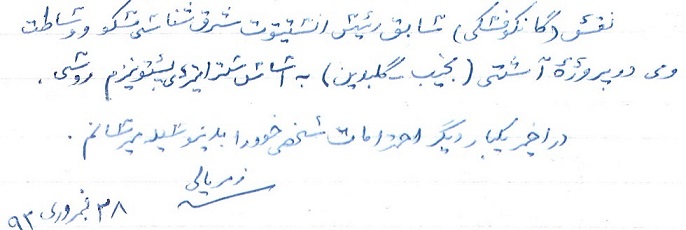 نقش (گانکوفسکی) سابق رئیس انستیتوت شرق شناسی مسکو و وساطت
وی در پروژهٔ آشتی (نجیب - گلبدین) به اساس ستراتیژی پشتونیزم روسی.
در اخیر یکبار دیگر احترامات شخصی خود را بدینوسیله میرسانم.
زمریالی
۲۸ فبروری ۹۲